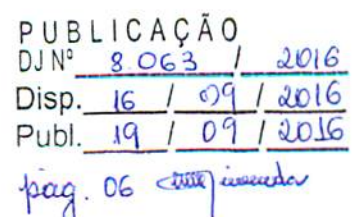 PUBLICAÇÃO
DJ Nº 8.063 / 2016
Disp. 16 / 09 / 2016
Publ. 19 / 09 / 2016
pág. 06